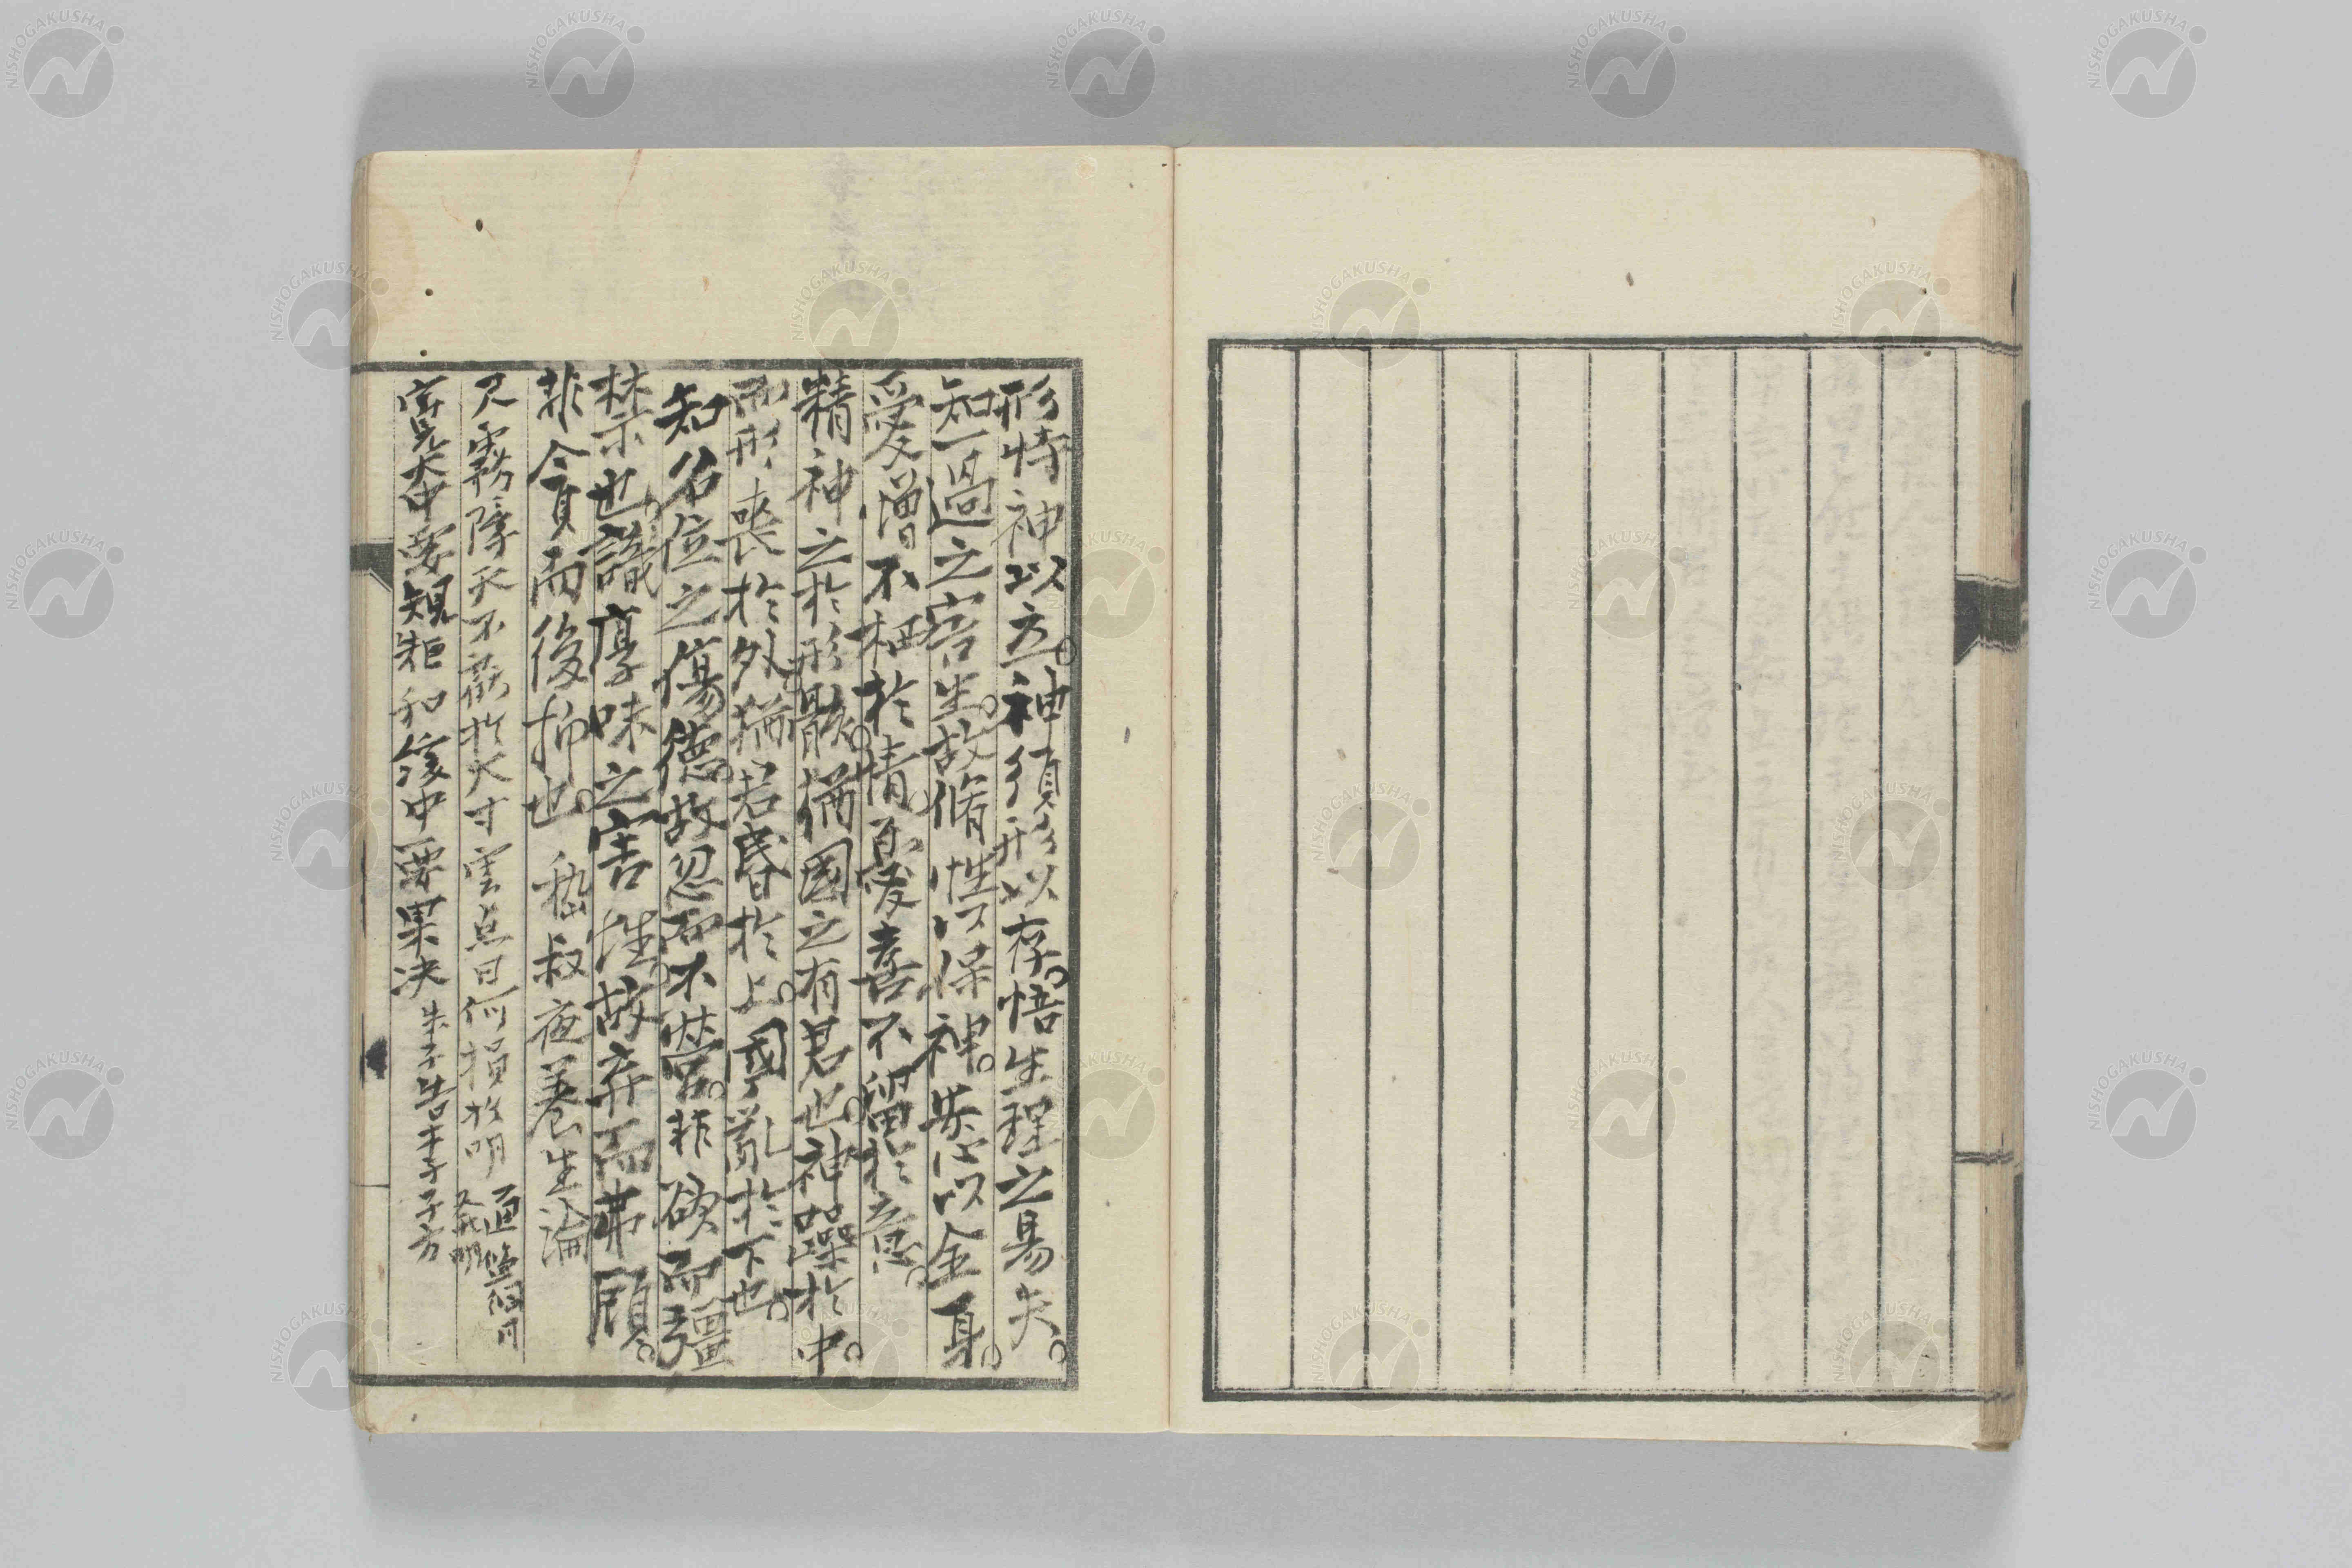 形恃神以立。神須形以存。悟生理之易失。
知一過之害生。故脩性以保神。安心以全身。
愛憎不栖於情。憂喜不留於意。
精神之於形骸。猶國之有君也。神躁於中。
而形喪於外。猶君昏於上。國亂於下也。
知名位之傷德。故忽而不營。非欲而彊
禁也。識厚味之害性。故弃而弗顧。
非貪而後抑也。 嵆叔夜養生論
尺霧障天不虧於大寸雲点日何損於明
寬大中要規矩和緩中要果決 朱子告李子方
NISHOGAKUSHA